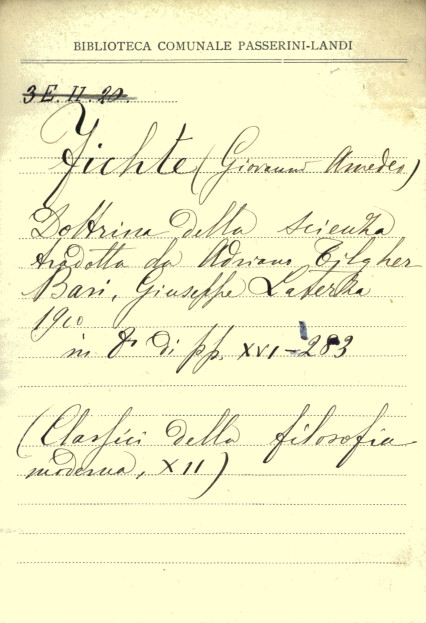 BIBLIOTECA COMUNALE PASSERINI-LANDI
3E.II.20.
Fichte (Giovanni Amedeo)
Dottrina della scienza
tradotta da Adriano Tilgher
Bari, Giuseppe Laterza
1910
in 8º di pp. XVI-283
(Classici della filosofia
moderna, XII)